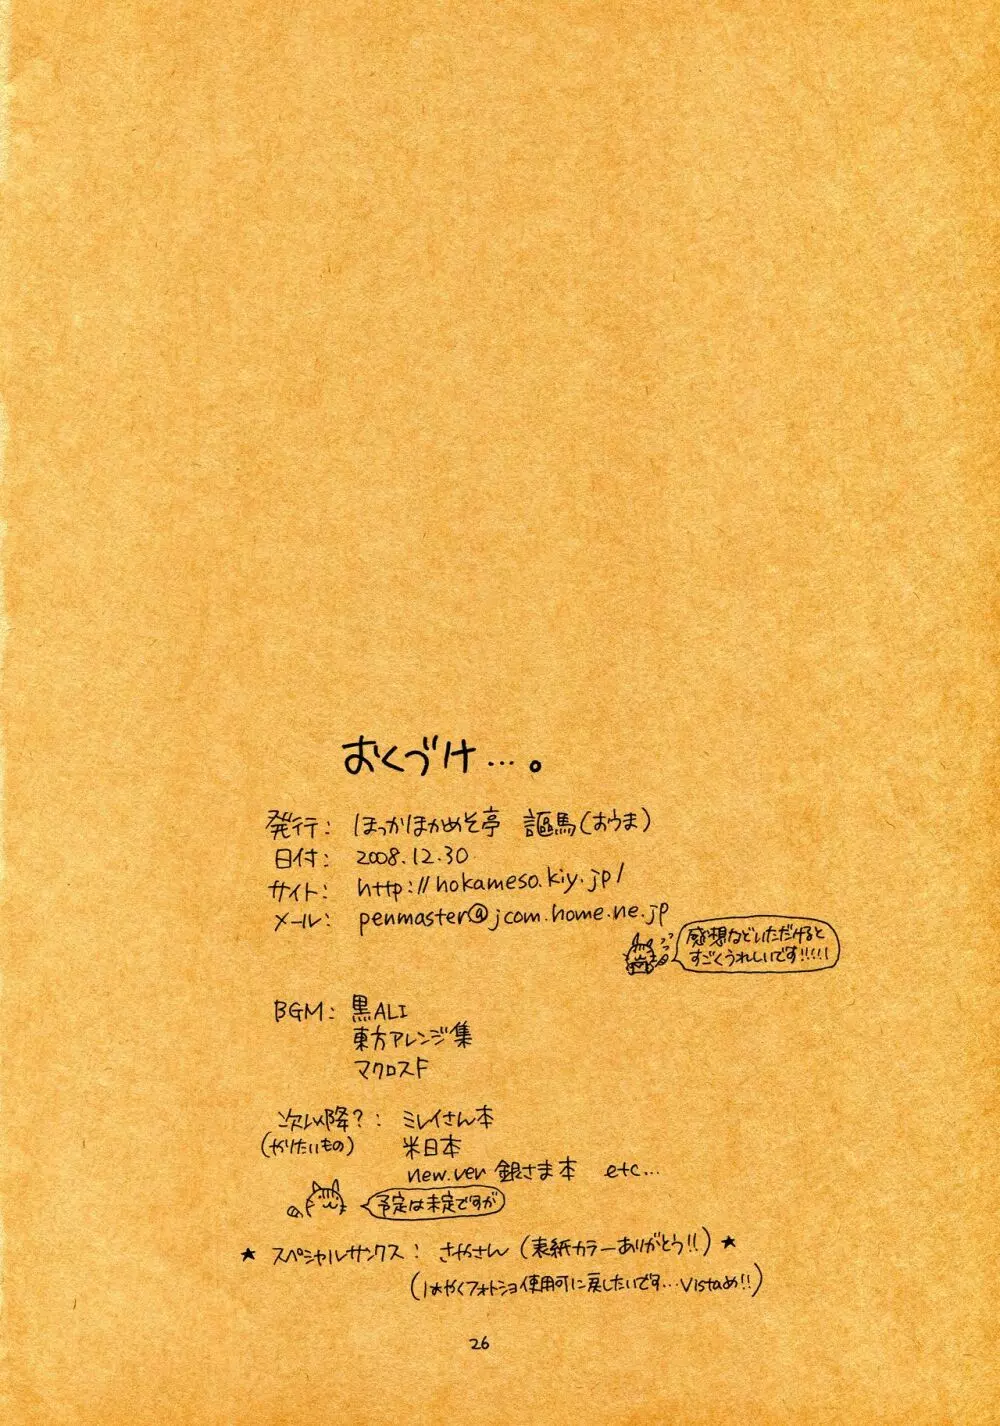 おくづけ…。
発行: ほっかほかめそ亭 謳馬(おうま)
日付: 2008.12.30
サイト: http://hokameso.kiy.jp/
メール: penmaster@jcom.home.ne.jp
感想などいただけると
すごくうれしいです!!!!!
BGM: 黒ALI
東方アレンジ集
マクロスF
次以降?: ミレイさん本
(やりたいもの) 米日本
new.ver 銀さま本 etc...
予定は未定ですが
★ スペシャルサンクス: さやさん (表紙カラーありがとう!!) ★
(はやくフォトショ使用可に戻したいです…Vistaめ!!)
26